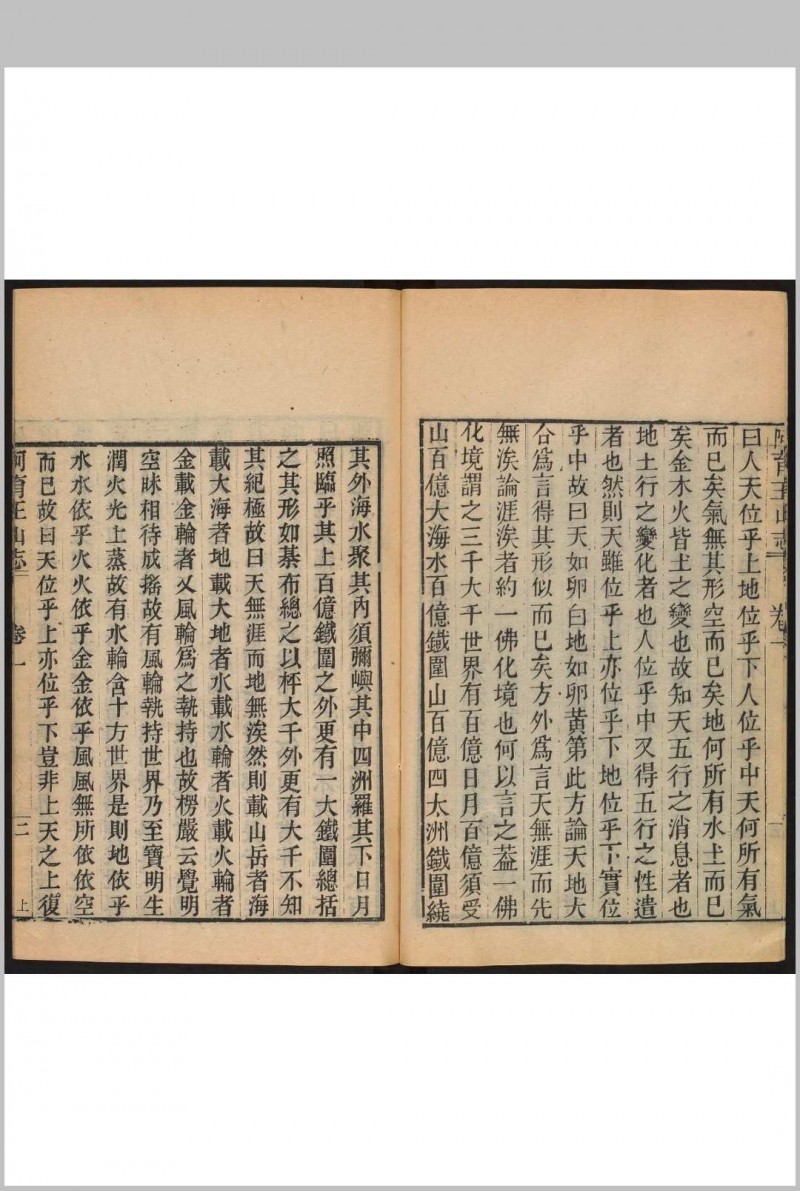 阿育王山志 卷一
曰人天位乎上地位乎下人位乎中天何所有氣
而巳矣氣無其形空而巳矣地何所有水土而巳
矣金木火皆土之變也故知天五行之消息者也
地土行之變化者也人位乎中又得五行之性遺
者也然則天雖位乎上亦位乎下地位乎下實位
乎中故曰天如卵白地如卵黃第此方論天地大
合爲言得其形似而巳矣方外爲言天無涯而先
無涘論涯涘者約一佛化境也何以言之葢一佛
化境謂之三千大千世界有百億日月百億須受
山百億大海水百億鐵圍山百億四太洲鐵圍繞
其外海水聚其內須彌嶼其中四洲羅其下日月
照臨乎其上百億鐵圍之外更有一大鐵圍總括
之其形如棊布總之以枰大千外更有大千不知
其紀極故曰天無涯而地無涘然則載山岳者海
載大海者地載大地者水載水輪者火載火輪者
金載金輪者又風輪爲之執持也故楞嚴云覺明
空昧相待成搖故有風輪執持世界乃至寶明生
潤火光上蒸故有水輪含十方世界是則地依乎
水水依乎火火依乎金金依乎風風無所依依空
而巳故曰天位乎上亦位乎下豈非上天之上復
阿育王山志 卷一 三 上